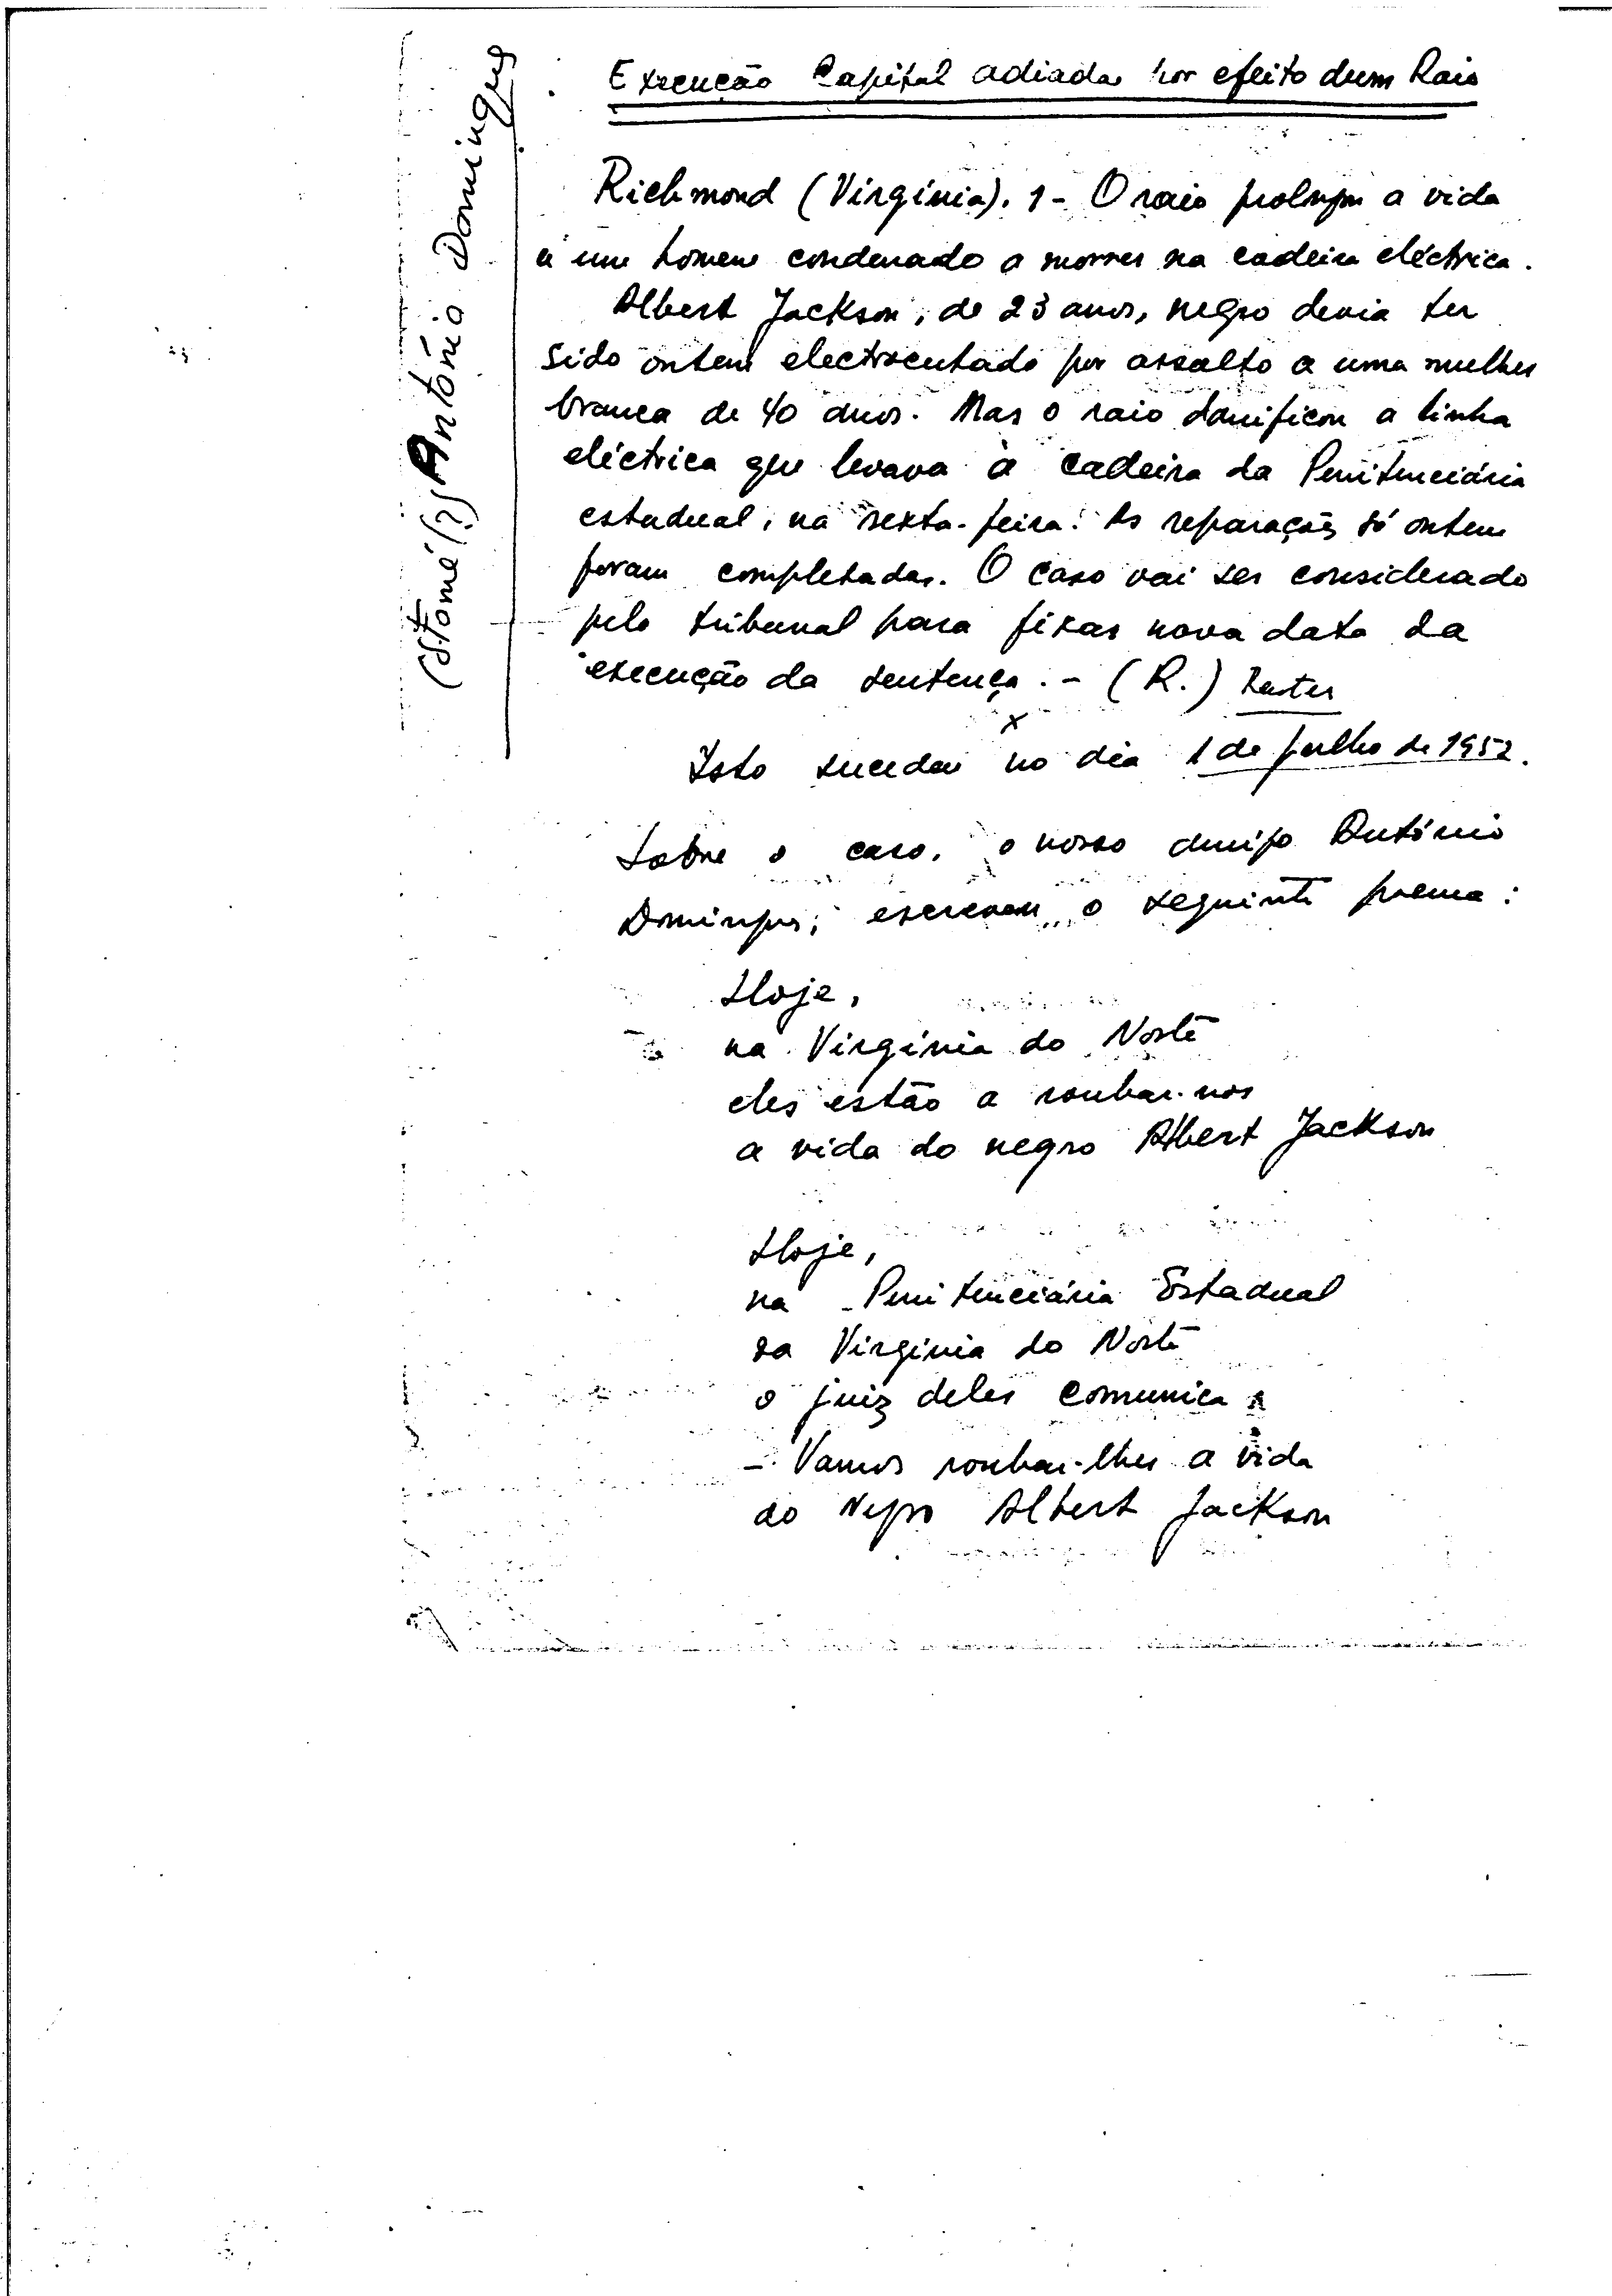 Execução Capital adiada por efeito dum Raio
(S. Tomé (?)) António Domingues
Richmond (Virgínia). 1 - O raio prolongou a vida
a um homem condenado a morrer na cadeira eléctrica.
Albert Jackson, de 23 anos, negro devia ter
sido ontem electrocutado por assalto a uma mulher
branca de 40 anos. Mas o raio danificou a linha
eléctrica que levava à cadeira da Penitenciária
estadual, na sexta-feira. As reparações só ontem
foram completadas. O caso vai ser considerado
pelo tribunal para fixar nova data da
execução da sentença. - (R.) Reuter
x
Isto sucedeu no dia 1 de Julho de 1952.
Sobre o caso, o nosso amigo António
Domingues, escreveu o seguinte poema:
Hoje,
na Virgínia do Norte
eles estão a roubar-nos
a vida do negro Albert Jackson
Hoje,
na Penitenciária Estadual
da Virgínia do Norte
o juiz deles comunica:
- Vamos roubar-lhes a vida
do Negro Albert Jackson